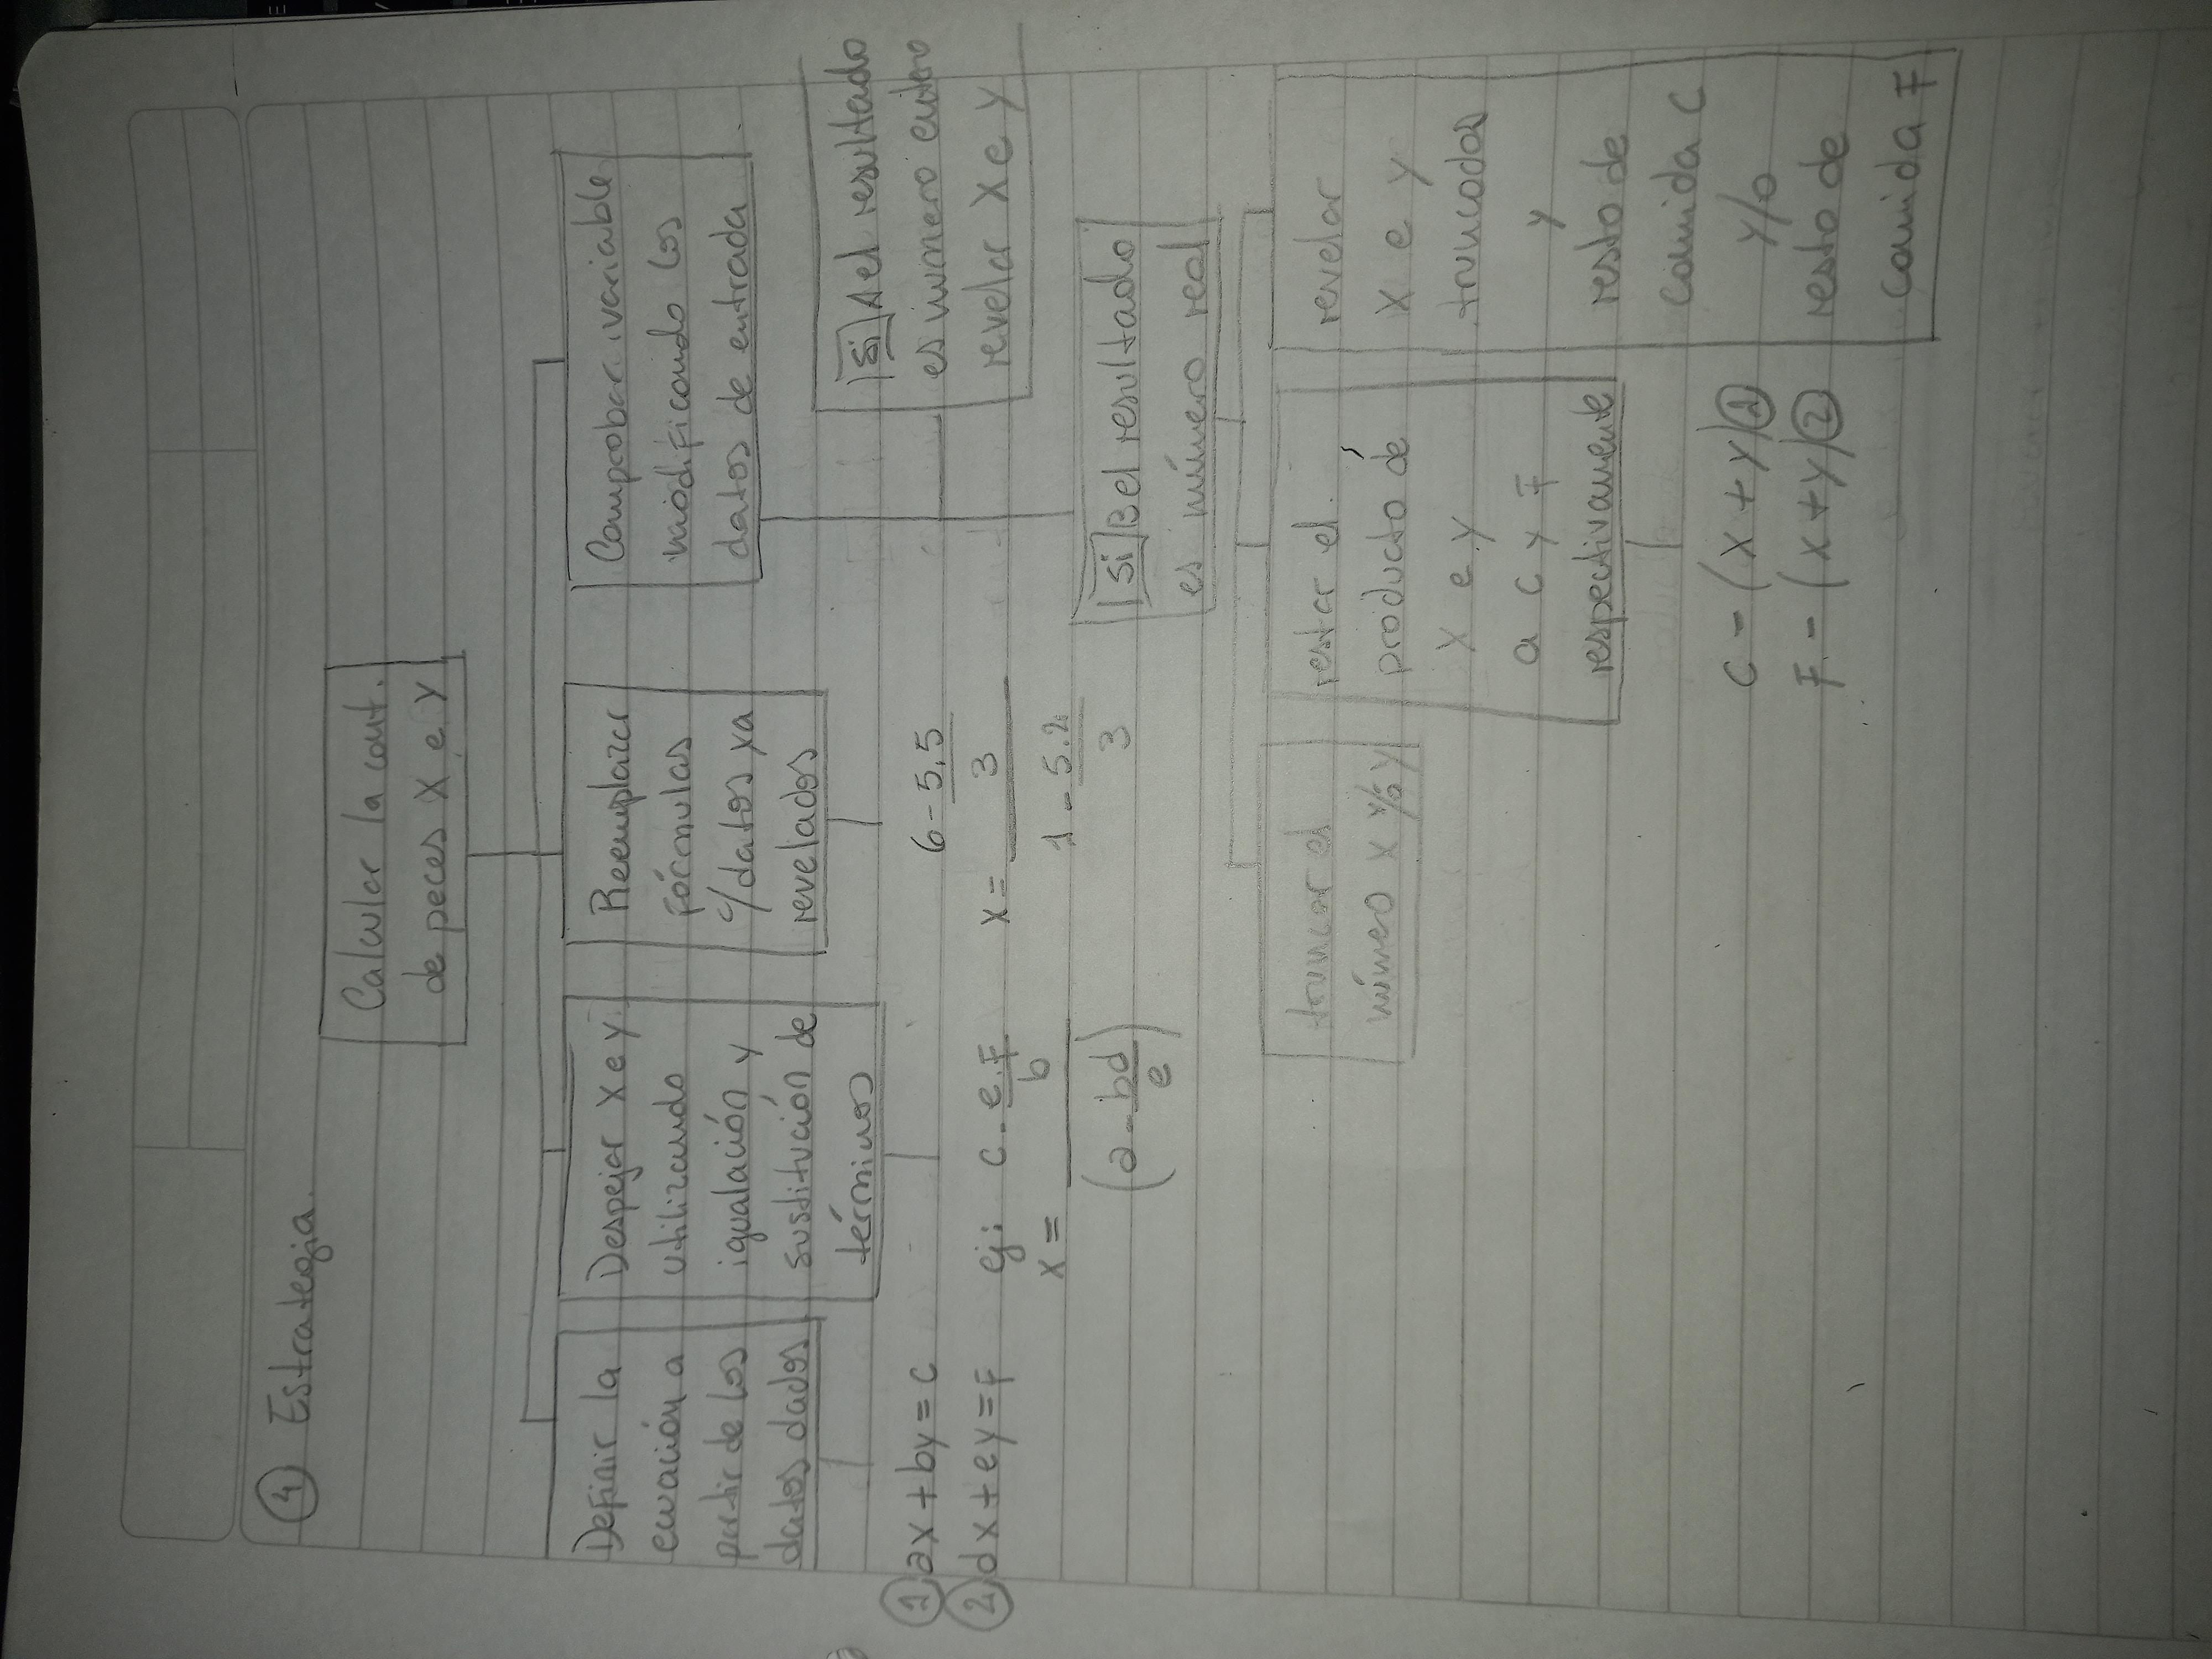 4 Estrategia.
Calcular la cant.
de peces X e Y
Definir la
ecuación a
partir de los
datos dados
1 ax + by = c
2 dx + ey = F
Despejar X e Y
utilizando
igualación y
sustitución de
términos
ej: c - e.F
b
x =
(a - bd
e)
Reemplazar
fórmulas
c/datos ya
revelados
6 - 5.5
3
x =
1 - 5.2
3
Comprobar variable
modificando los
datos de entrada
Si A el resultado
es numero entero
revelar X e Y
Si B el resultado
es número real
truncar el
número X y/o Y
restar el
producto de
X e Y
a C y F
respectivamente
C - (X + Y) 1
F - (X + Y) 2
revelar
X e Y
truncados
y
resto de
comida C
y/o
resto de
comida F